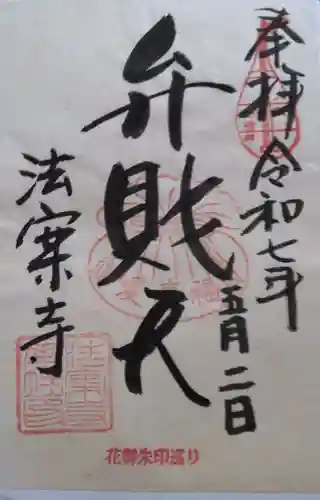 奉拝
令和七年
五月二日
弁財天
法案寺
花御朱印巡り